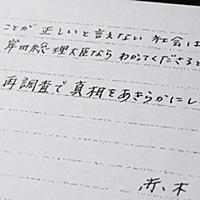 ことが 正しいと言えない 社会は
岸田総理大臣なら わかってくださると
再調査で真相をあきらかにし
赤木